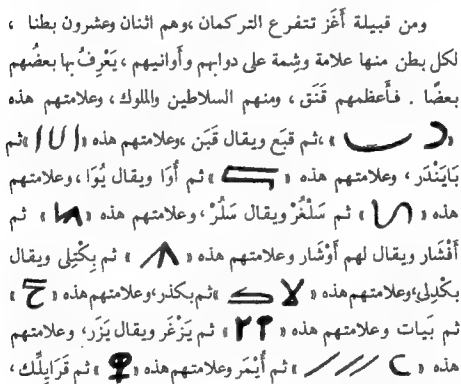 ومن قبيلة أُغَز تتفرع التركمان ،وهم اثنان وعشرون بطنا ،
لكل بطن منها علامة وسِمة على دوابهم وأوانيهم ،يَعْرِفُ بها بعضُهم
بعضًا . فأعظمهم قَنَق ، ومنهم السلاطين والملوك، وعلامتهم هذه
« » ،ثم قبَع ويقال قَبَن ،وعلامتهم هذه « » ثم
بَايَنْدَر ، وعلامتهم هذه « » ثم أَوَا ويقال يُوَا ، وعلامتهم
هذه « » ثم سَلْغُرْ ويقال سَلُرْ ، وعلامتهم هذه « » ثم
أَفْشَار ويقال لهم أَوْشَار وعلامتهم هذه « » ثم بِكْتِلى ويقال
بكْدِلى،وعلامتهم هذه « » ثم بكدز،وعلامتهم هذه « »
ثم بَيات وعلامتهم هذه « » ثم يَزْغَر ويقال يَزَر، وعلامتهم
هذه « » ثم أَيْمَر وعلامتهم هذه « » ثم قَرَابِلُك ،